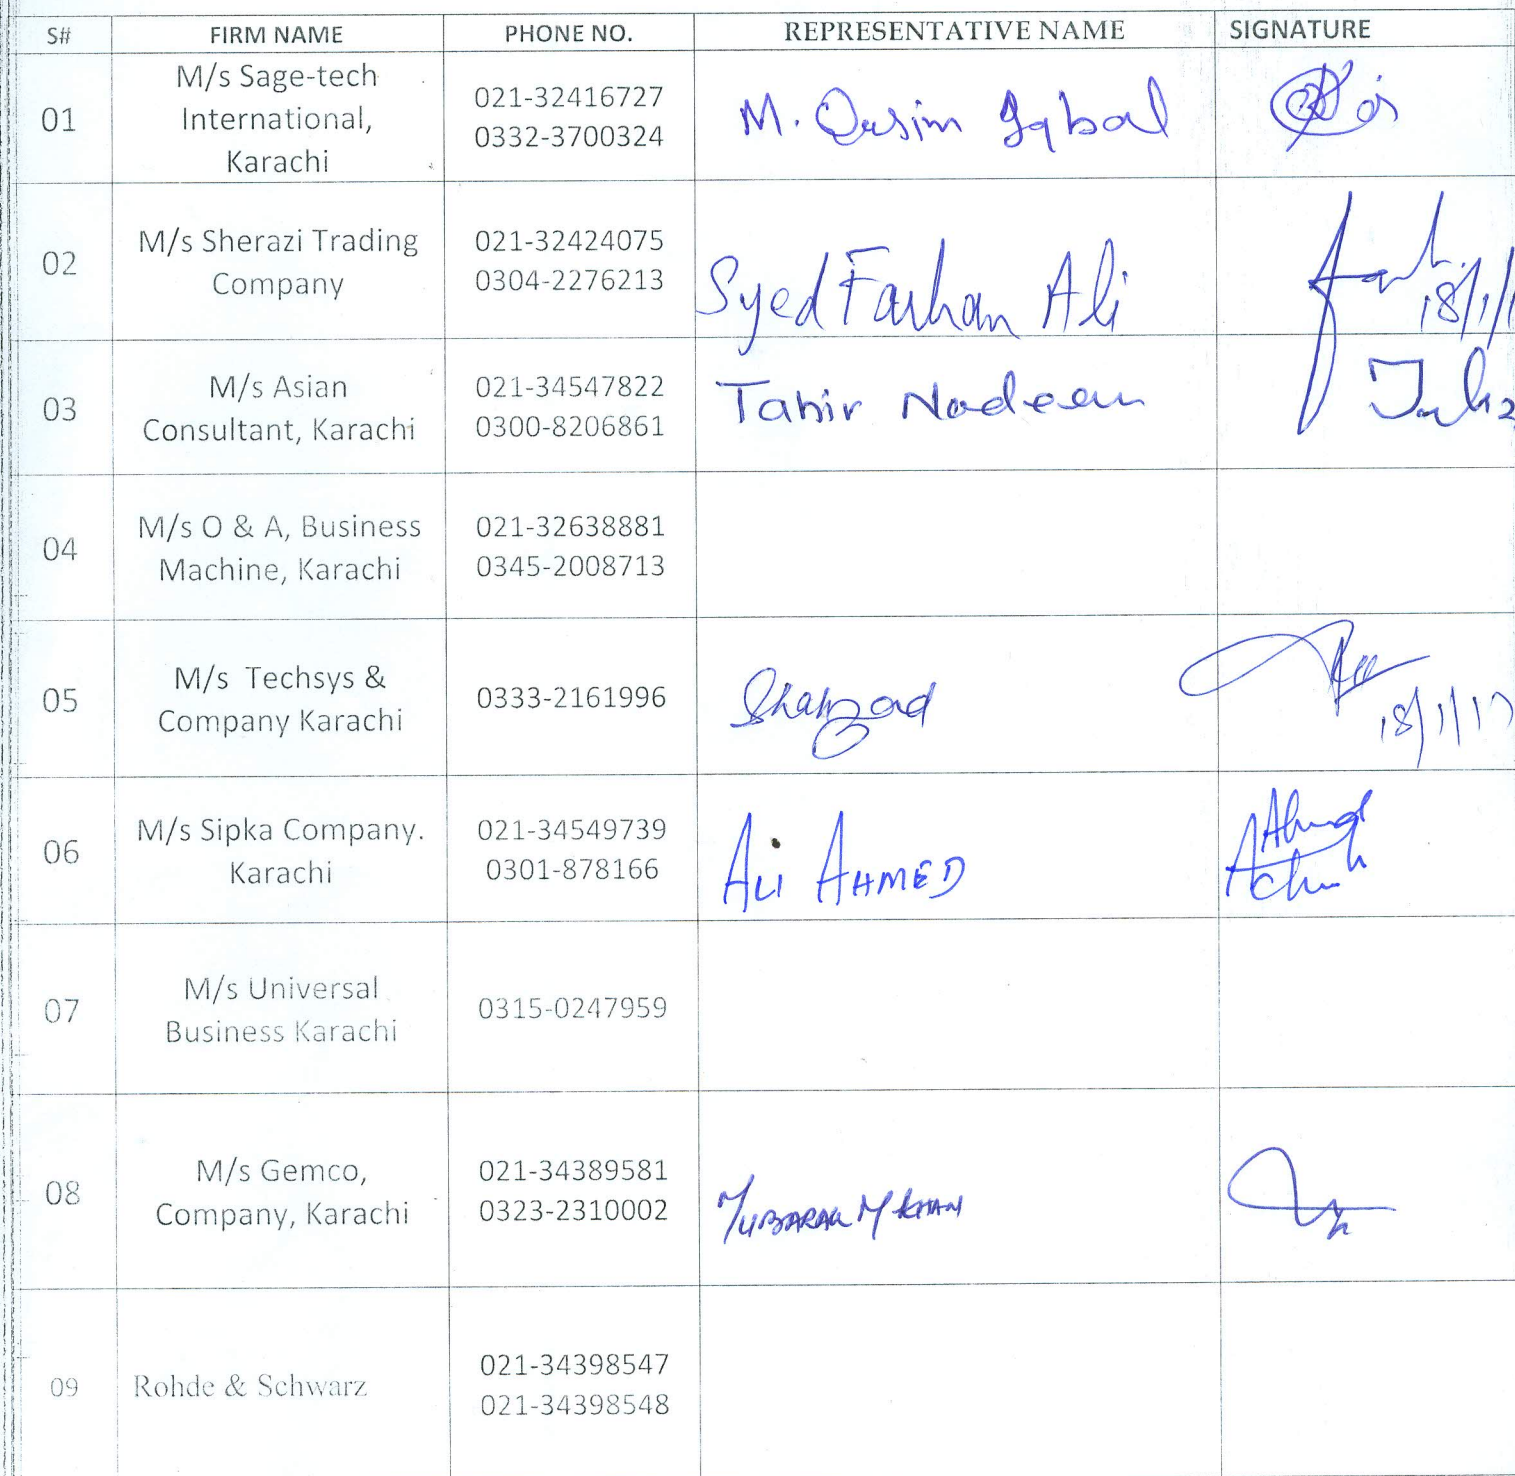 S# FIRM NAME PHONE NO. REPRESENTATIVE NAME SIGNATURE
01
M/s Sage-tech
International,
Karachi
021-32416727
0332-3700324
M. Qasim Iqbal
02
M/s Sherazi Trading
Company
021-32424075
0304-2276213
Syed Farhan Ali
18/1/1
03
M/s Asian
Consultant, Karachi
021-34547822
0300-8206861
Tahir Nadeem
04
M/s O & A, Business
Machine, Karachi
021-32638881
0345-2008713
05
M/s Techsys &
Company Karachi
0333-2161996
Shahzad
18/1/17
06
M/s Sipka Company.
Karachi
021-34549739
0301-878166
ALI AHMED
Ahmed
07
M/s Universal
Business Karachi
0315-0247959
08
M/s Gemco,
Company, Karachi
021-34389581
0323-2310002
MUBARAK M KHAN
09
Rohde & Schwarz
021-34398547
021-34398548